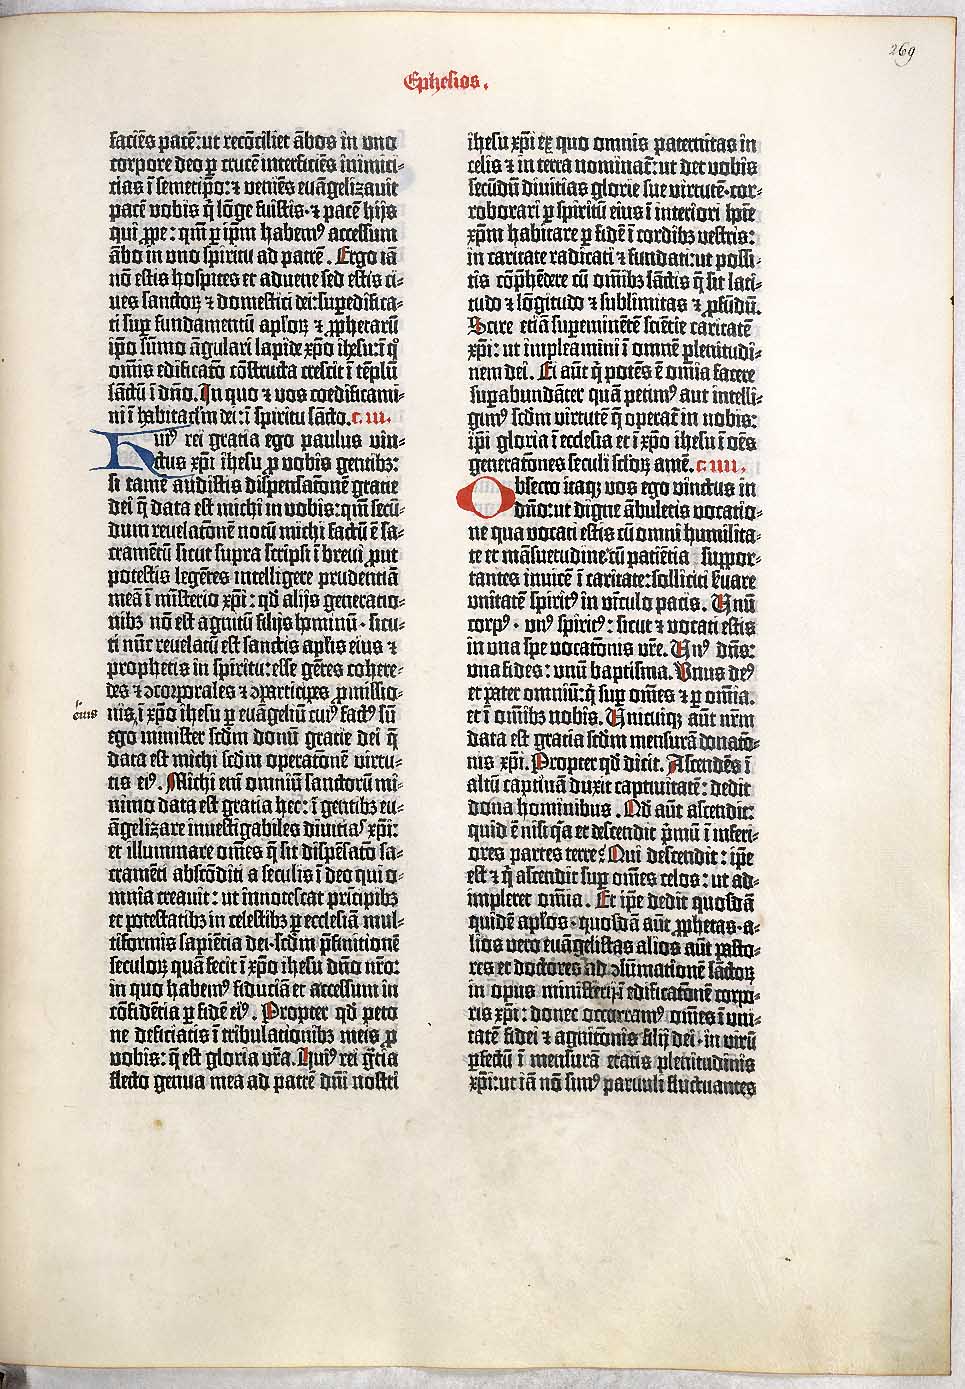 269
Ephesios.
faciēs pacē: ut recōciliet ābos in uno
corpore deo p̲ crucē interficiēs inimici-
tias ī semetip̄o: ⁊ veniēs euāgelizauit
pacē vobis q̄ lōge fuistis · ⁊ pacē hijs
qui ꝓpe: qm̄ p̲ ip̄m habemꝰ accessum
ābo in uno spiritu ad patrē. Ergo iā
nō estis hospites et aduene sed estis ci-
ues sanctoꝝ ⁊ domestici dei: sup̲edifica-
ti sup̲ fundamentū ap̄loꝝ ⁊ ꝓphetarū
ip̄o sūmo āgulari lapide xp̄o ih̄esu: ī q̊
om̄is edificatō cōstructa crescit ī tēplū
sāctū ī dn̄o. In quo ⁊ vos coedificami-
ni ī habitac̄lm dei: ī spiritu sācto. c. iii.
Huiꝰ rei gratia ego paulus vin-
ctus xp̄i ih̄esu ꝓ vobis gentibꝫ:
si tamē audistis dispensatōnē gratie
dei q̄ data est michi in vobis: qm̄ secū-
dum reuelatōnē notū michi factū ē sa-
cramētū sicut supra scripsi ī breui ꝓut
potestis legētes intelligere prudentiā
meā ī mīsterio xp̄i: qd̄ alijs generatio-
nibꝫ nō est agnitū filijs hominū · sicu-
ti nūc reuelatū est sanctis ap̄lis eius ⁊
prophetis in spiritu: esse gētes cohere-
des ⁊ ꝯcorporales ⁊ ꝯparticipes ꝓmissio-
eius
nis ī xp̄o ih̄esu p̲ euāgeliū cuiꝰ factꝰ sū
ego minister scd̄m donū gracie dei q̄
data est michi scd̄m operatōnē virtu-
tis eiꝰ. Michi enī omniū sanctorū mi-
nimo data est gratia hec: ī gentibꝫ eu-
āgelizare inuestigabiles diuitias xp̄i:
et illuminare om̄es q̄ sit dispēsatō sa-
cramēti absconditi a seculis ī deo qui o-
mnia creauit: ut innotescat prīcipibꝫ
et potestatibꝫ in celestibꝫ p̲ ecclesiā mul-
tiformis sapiētia dei · scd̄m p̄finitionē
seculoꝝ quā fecit ī xp̄o ih̄esu dn̄o nr̄o:
in quo habemꝰ fiduciā et accessum in
cōfidētia p̲ fidē eiꝰ. Propter qd̄ peto
ne deficiatis ī tribulationibꝫ meis ꝓ
vobis: q̄ est gloria vr̄a. Huiꝰ rei gr̄cia
flecto genua mea ad patrē dn̄i nostri
ih̄esu xp̄i ex quo omnis paternitas in
celis ⁊ in terra nominat̄: ut det vobis
secūdū diuitias glorie sue virtutē · cor-
roborari p̲ spiritū eius ī interiori hoīe
xp̄m habitare p̲ fidē ī cordibꝫ vestris:
in caritate radicati ⁊ fundati: ut possi-
tis cōp̄hēdere cū om̄ibꝫ sāctis q̄ sit lati-
tudo ⁊ lōgitudo ⁊ sublimitas ⁊ ꝓfūdū.
Scire etiā sup̲eminētē sciētie caritatē
xp̄i: ut impleamini ī omnē plenitudi-
nem dei. Ei aūt q̄ potēs ē om̄ia facere
sup̲abundāter quā petimꝰ aut intelli-
gimꝰ scd̄m virtutē q̄ operat̄ in nobis:
ip̄i gloria ī ecclesia et ī xp̄o ih̄esu ī oēs
generatōnes seculi sc̄loꝝ amē. c. iiii.
Obsecro itaqꝫ vos ego vinctus in
dn̄o: ut digne ābuletis vocatio-
ne qua vocati estis cū omni humilita-
te et māsuetudine · cū patiētia suppor-
tantes inuicē ī caritate: solliciti s̄uare
vnitatē spiritꝰ in vīculo pacis. Unū
corpꝰ · vnꝰ spiritꝰ: sicut ⁊ vocati estis
in una spe vocatōnis vr̄e. Unꝰ dn̄s:
vna fides: vnū baptisma. Vnus deꝰ
et pater omniū: q̄ sup̲ om̄es ⁊ p̲ om̄ia.
et ī om̄ibꝫ nobis. Unicuiqꝫ aūt nr̄m
data est gratia scd̄m mensurā donatō-
nis xp̄i. Propter qd̄ dicit. Ascendēs ī
altū captiuā duxit captiuitatē: dedit
dona hominibus. Qd̄ aūt ascendit:
quid ē nisi q̄a et descendit p̄mū ī inferi-
ores partes terre? Qui descendit: ip̄e
est ⁊ q̄ ascendit sup̲ om̄es celos: ut ad-
impleret om̄ia. Et ip̄e dedit quosdā
quidē ap̄los · quosdā aūt ꝓphetas · a-
lios vero euāgelistas alios aūt pasto-
res et doctores ad ꝯsūmationē sāctoꝝ
in opus ministerij ī edificatōnē corpo-
ris xp̄i: donec occurramꝰ om̄es ī uni-
tatē fidei ⁊ agnitōnis filij dei · in virū
p̲fectū ī mensurā etatis plenitudinis
xp̄i: ut iā nō simꝰ paruuli fluctuantes